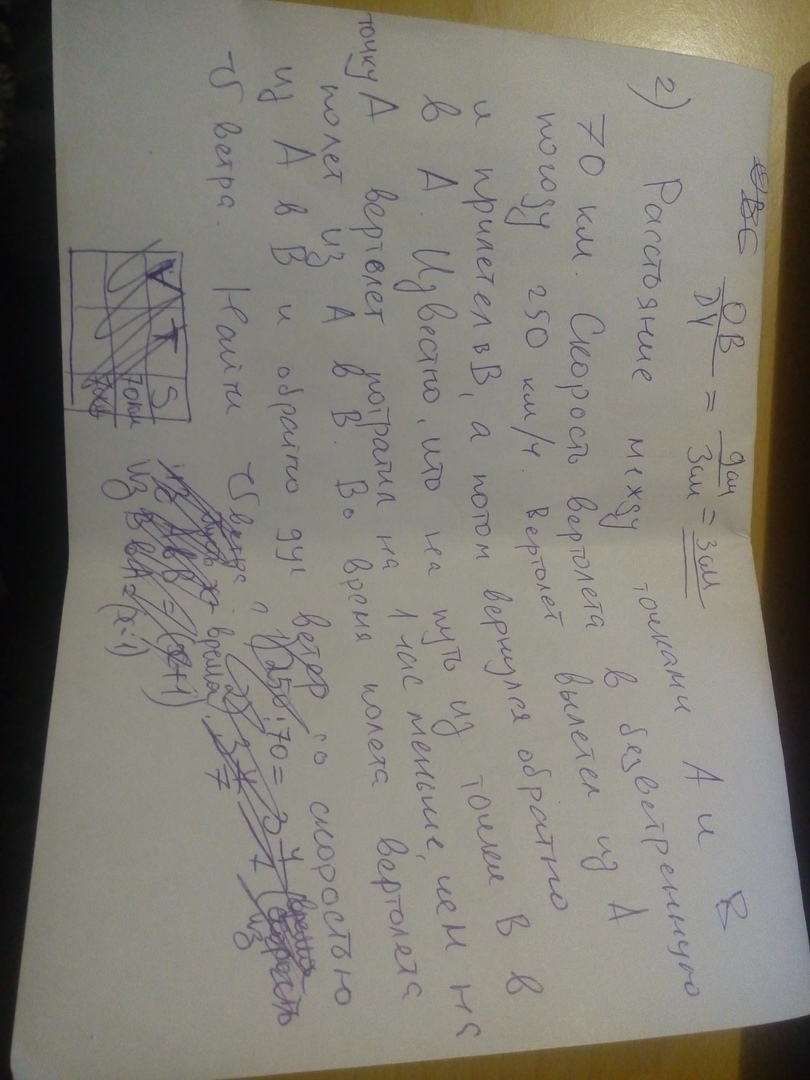 ОВ/DV = дм/Зам = Зам
2) Расстояние между точками А и В
70 км. Скорость вертолета в безветренную
погоду 250 км/ч. Вертолет вылетел из А
и прилетел в В, а потом вернулся обратно
в А. Известно, что на путь из точки В в
точку А вертолет потратил на 1 час меньше, чем на
полет из А в В. Во время полета вертолета
из А в В и обратно дул ветер со скоростью
V ветра. Найти V ветра.
V T S
70км
70км
250:70=3 4/7
из А в В = (x+1)
из В в А = (x-1)
время